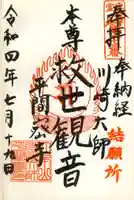 奉拝
奉納経
川崎大師
結願所
本尊
救世観音
平間寺
令和四年七月十九日